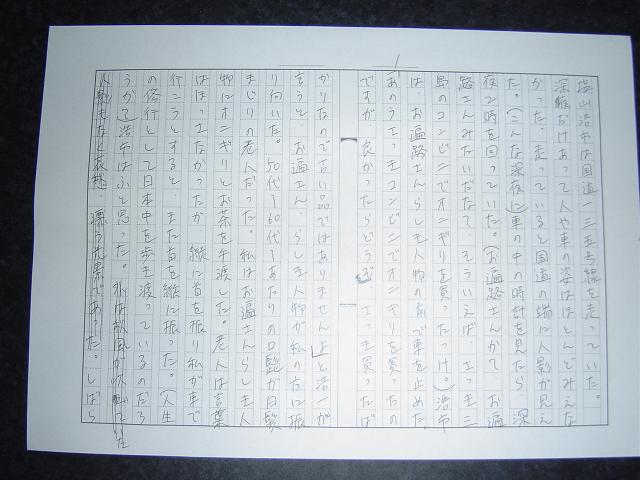 塩山浩市は国道一三五号線を走っていた。
深夜だけあって人や車の姿はほとんどみえな
かった。走っていると国道の端に人影が見え
た。(こんな深夜に)車の中の時計を見たら、深
夜2時を回っていた。(お遍路さんかて、お遍
路さんみたいだなて、そういえば、さっき三
島のコンビニでオニギリを買ったっけ。)浩市
は、お遍路さんらしき人物の前で車を止めた。
あのうさっきコンビニでオニギリを買ったの
ですが、良かったらどうぞ、さっき買ったば
かりなので古い品ではありません」と浩一が
言うと、お遍さん、らしき人物が私の方に振
り向いた。50代〜60代〜あたりの口髭が白髪
まじりの老人だった。私はお遍さんらしき人
物にオニギリとお茶を手渡した。老人は言葉
はほっさなかったが、縦に首を振り私が車で
行こうとすると、また首を縦に振った。(人生
の修行として日本中を歩き渡っているのだろ
うか)と浩市はふと思った。外は秋風が吹いてた
漂う光景であった。しばら